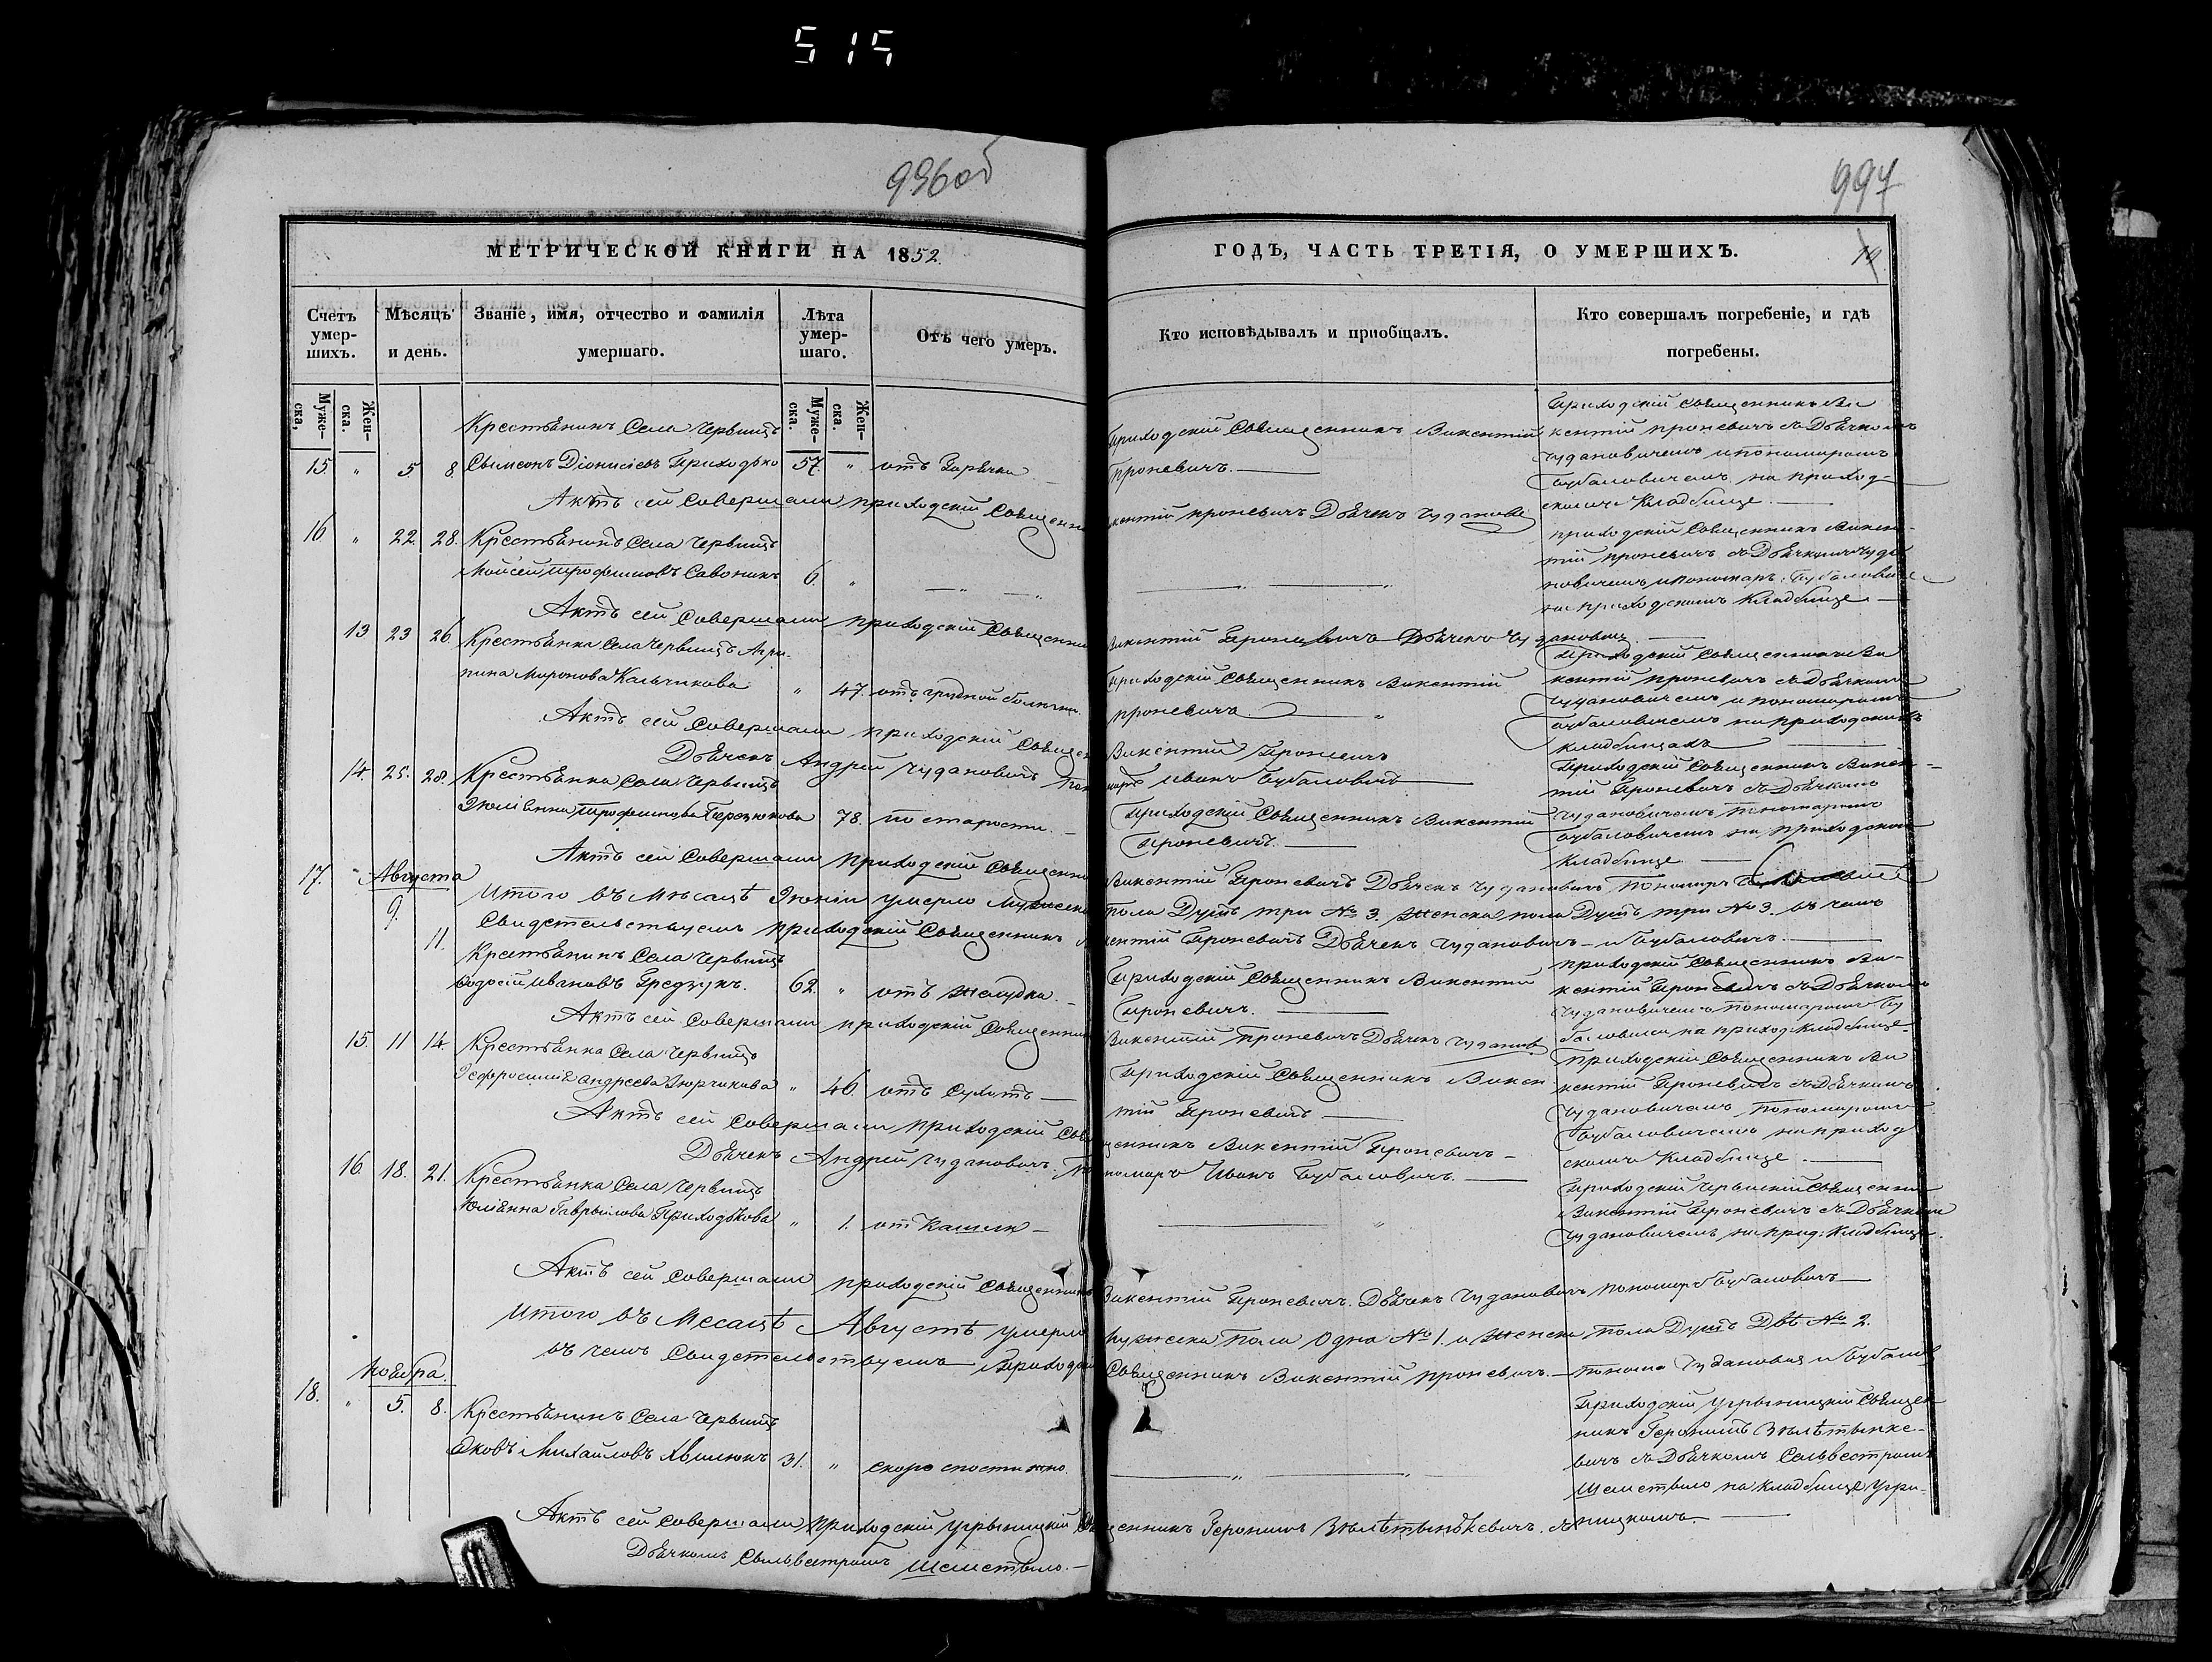 515
996об
997
МЕТРИЧЕСКОЙ КНИГИ НА 1852.
ГОДЪ, ЧАСТЬ ТРЕТІЯ, О УМЕРШИХЪ.
Счетъ умер-шихъ.
Мѣсяцъ и день.
Званіе, имя, отчество и фамилія умершаго.
Лѣта умер-шаго.
Отъ чего умеръ.
Кто исповѣдывалъ и пріобщалъ.
Кто совершалъ погребеніе, и гдѣ погребены.
Муже-ска,
Жен-ска.
Муже-ска.
Жен-ска.
Крестьянинъ Села Червищъ
15 " 5 8. Свимеонъ Діонисіевъ Приходько 57. " отъ
Приходскій Священникъ Викентій
Проневичъ.
Приходскій Священникъ Ви
кентій Проневичъ съ Дьячкомъ
Чудановичемъ и пономаромъ
Бубаловичемъ на приход-
скомъ Кладбище.
Актъ сей совершали приходскій Священни
кентій Проневичъ Дьячекъ Чуданови
16 " 22. 28. Крестьянинъ Села Червищъ
Мойсей Трофимовъ Савоникъ 6. "
приходскій Священникъ Викен-
тій Проневичъ съ Дьячкомъ Чуда
новичемъ и пономар: Бубалович
на приходскомъ Кладбище
Актъ сей совершали приходскій Священни
Викентій Проневичъ Дьячекъ Чудановичъ
13 23 26 Крестьянка Села Червищъ Агри-
пина Миронова Кальчикова " 47. отъ грудной болезни.
Приходскій Священникъ Викентій
Проневичъ.
Приходскій Священникъ Ви
кентій Проневичъ съ Дьячкомъ
Чудановичемъ и пономаромъ
Бубаловичемъ на приходскихъ
кладбищахъ
Актъ сей совершали приходскій Священ
Викентій Проневичъ
Дьячекъ Андрей Чудановичъ Пон
маръ Иванъ Бубаловичъ
14. 25. 28. Крестьянка Села Червищъ
Трофимова 78. по старости.
Приходскій Священникъ Викентій
Проневичъ.
Приходскій Священникъ Викен-
тій Проневичъ съ Дьячкомъ
Чудановичемъ Пономаромъ
Бубаловичемъ на приходском
Кладбище
Актъ сей совершали приходскій Священни
Викентій Проневичъ Дьячекъ Чудановичъ Пономаръ
17. " Августа
9.
11.
Итого въ месяцѣ умерло Мужеска
пола Душъ три № 3. женска пола Душъ три № 3. въ чемъ
Свидетельствуемъ приходскій Священникъ
кентій Проневичъ Дьячекъ Чудановичъ и Бубаловичъ.
Крестьянинъ Села Червищъ
Ивановъ Гредзукъ. 62. " отъ желудка.
Приходскій Священникъ Викентій
Проневичъ.
приходскій Священникъ Ви-
кентій Проневичъ съ Дьячкомъ
Чудановичемъ Пономаромъ Бу
баловичем на приход: Кладбище
Актъ сей совершали приходскій Священник
Викентій Проневичъ Дьячекъ Чуданов
15. 11 14. Крестьянка Села Червищъ
Андреева " 46. отъ Сухотъ
Приходскій Священникъ Викен
тій Проневичъ
Приходскій Священникъ Ви
кентій Проневичъ съ Дьячкомъ
Чудановичемъ, Пономаромъ
Бубаловичемъ на приход
скомъ Кладбище.
Актъ сей совершали приходскій Свя
щенникъ Викентій Проневичъ
Дьячекъ Андрей Чудановичъ. По
номаръ Иванъ Бубаловичъ.
16. 18. 21. Крестьянка Села Червищъ
Юліанна Гаврылова Приходькова " 1. от Кашлю
Приходскій Червискій Священник
Викентій Проневичъ съ Дьячкомъ
Чудановичемъ на прид: Кладбище.
Актъ сей совершали приходскій Священникъ
Викентій Проневичъ. Дьячекъ Чудановичъ пономаръ Бубаловичъ
Итого въ Месацѣ Августѣ умерло
Мужеска Пола Одна № 1. и Женска пола Душъ Двѣ № 2.
въ чемъ Свидетельствуемъ Приходск
Священникъ Викентій Проневичъ.
Ноября.
18. " 5. 8. Крестьянинъ Села Червищъ
Яковъ Михайловъ Хвилюкъ 31. " скоропостижно.
Приходскій Угрыницкій Священ
никъ Іеронимъ
вичъ съ Дьячкомъ Сельвестромъ
на кладбище Угри-
ницкомъ.
Актъ сей совершали приходскій Угрыницкій Св
щенникъ Іеронимъ
Дьячкомъ Сильвестромъ